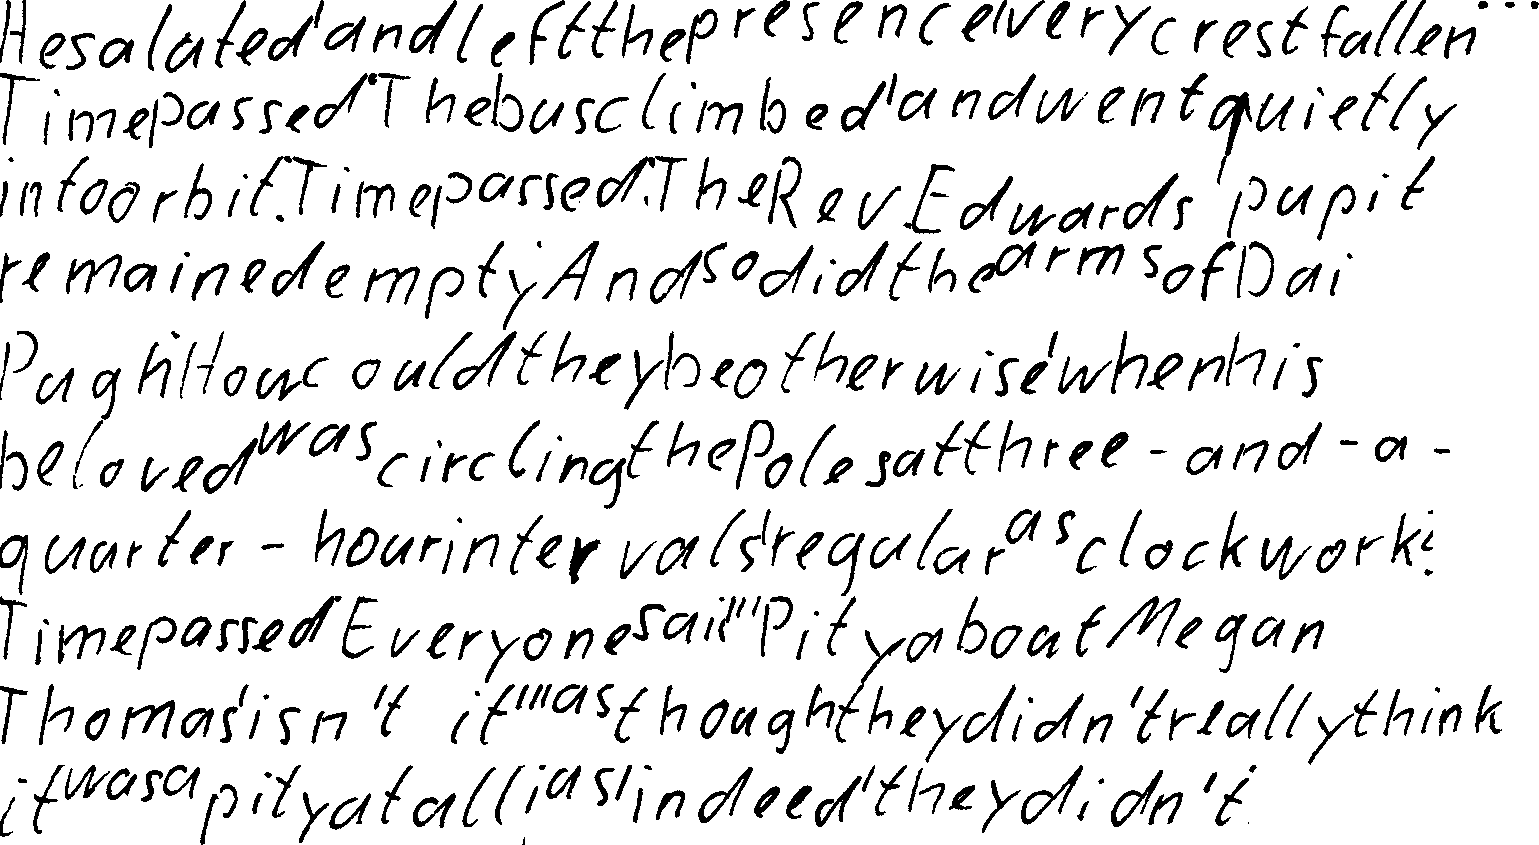 He saluted and left the presence, very crestfallen ...
Time passed. The bus climbed, and went quietly
into orbit. Time passed. The Rev. Edwards' pupit
remained empty. And so did the arms of Dai
Pugh. How could they be otherwise, when his
beloved was circling the Poles at three-and-a-
quarter-hour intervals, regular as clockwork?
Time passed. Everyone said "Pity about Megan
Thomas, isn't it", as though they didn't really think
it was a pity at all; as, indeed, they didn't.